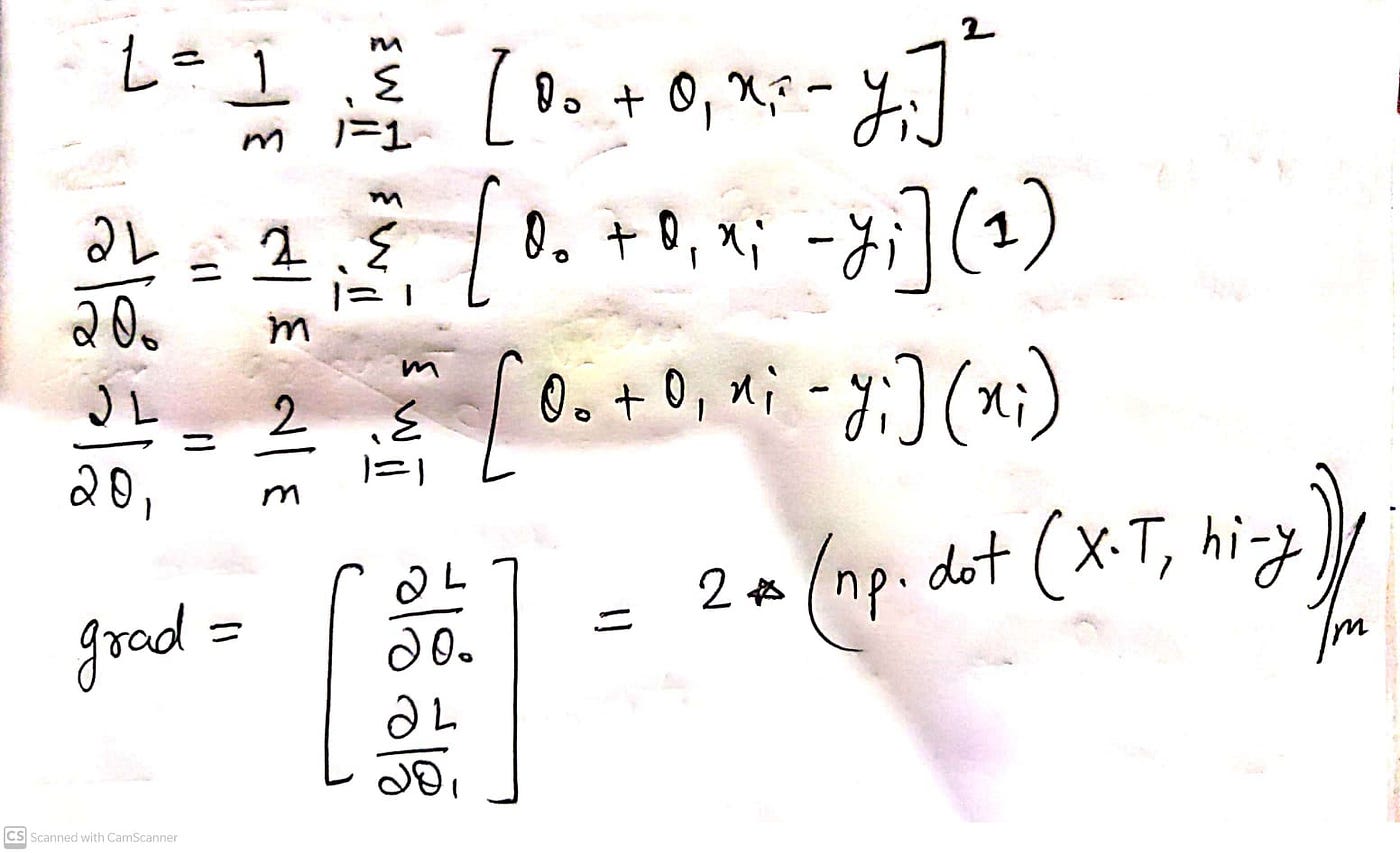 L = 1/m Σ_{i=1}^{m} [θ₀ + θ₁ xᵢ - yᵢ]²
∂L/∂θ₀ = 2/m Σ_{i=1}^{m} [θ₀ + θ₁ xᵢ - yᵢ](1)
∂L/∂θ₁ = 2/m Σ_{i=1}^{m} [θ₀ + θ₁ xᵢ - yᵢ](xᵢ)
grad = [∂L/∂θ₀ ∂L/∂θ₁] = 2 * (np.dot(X.T, hi-y))/m
CS Scanned with CamScanner